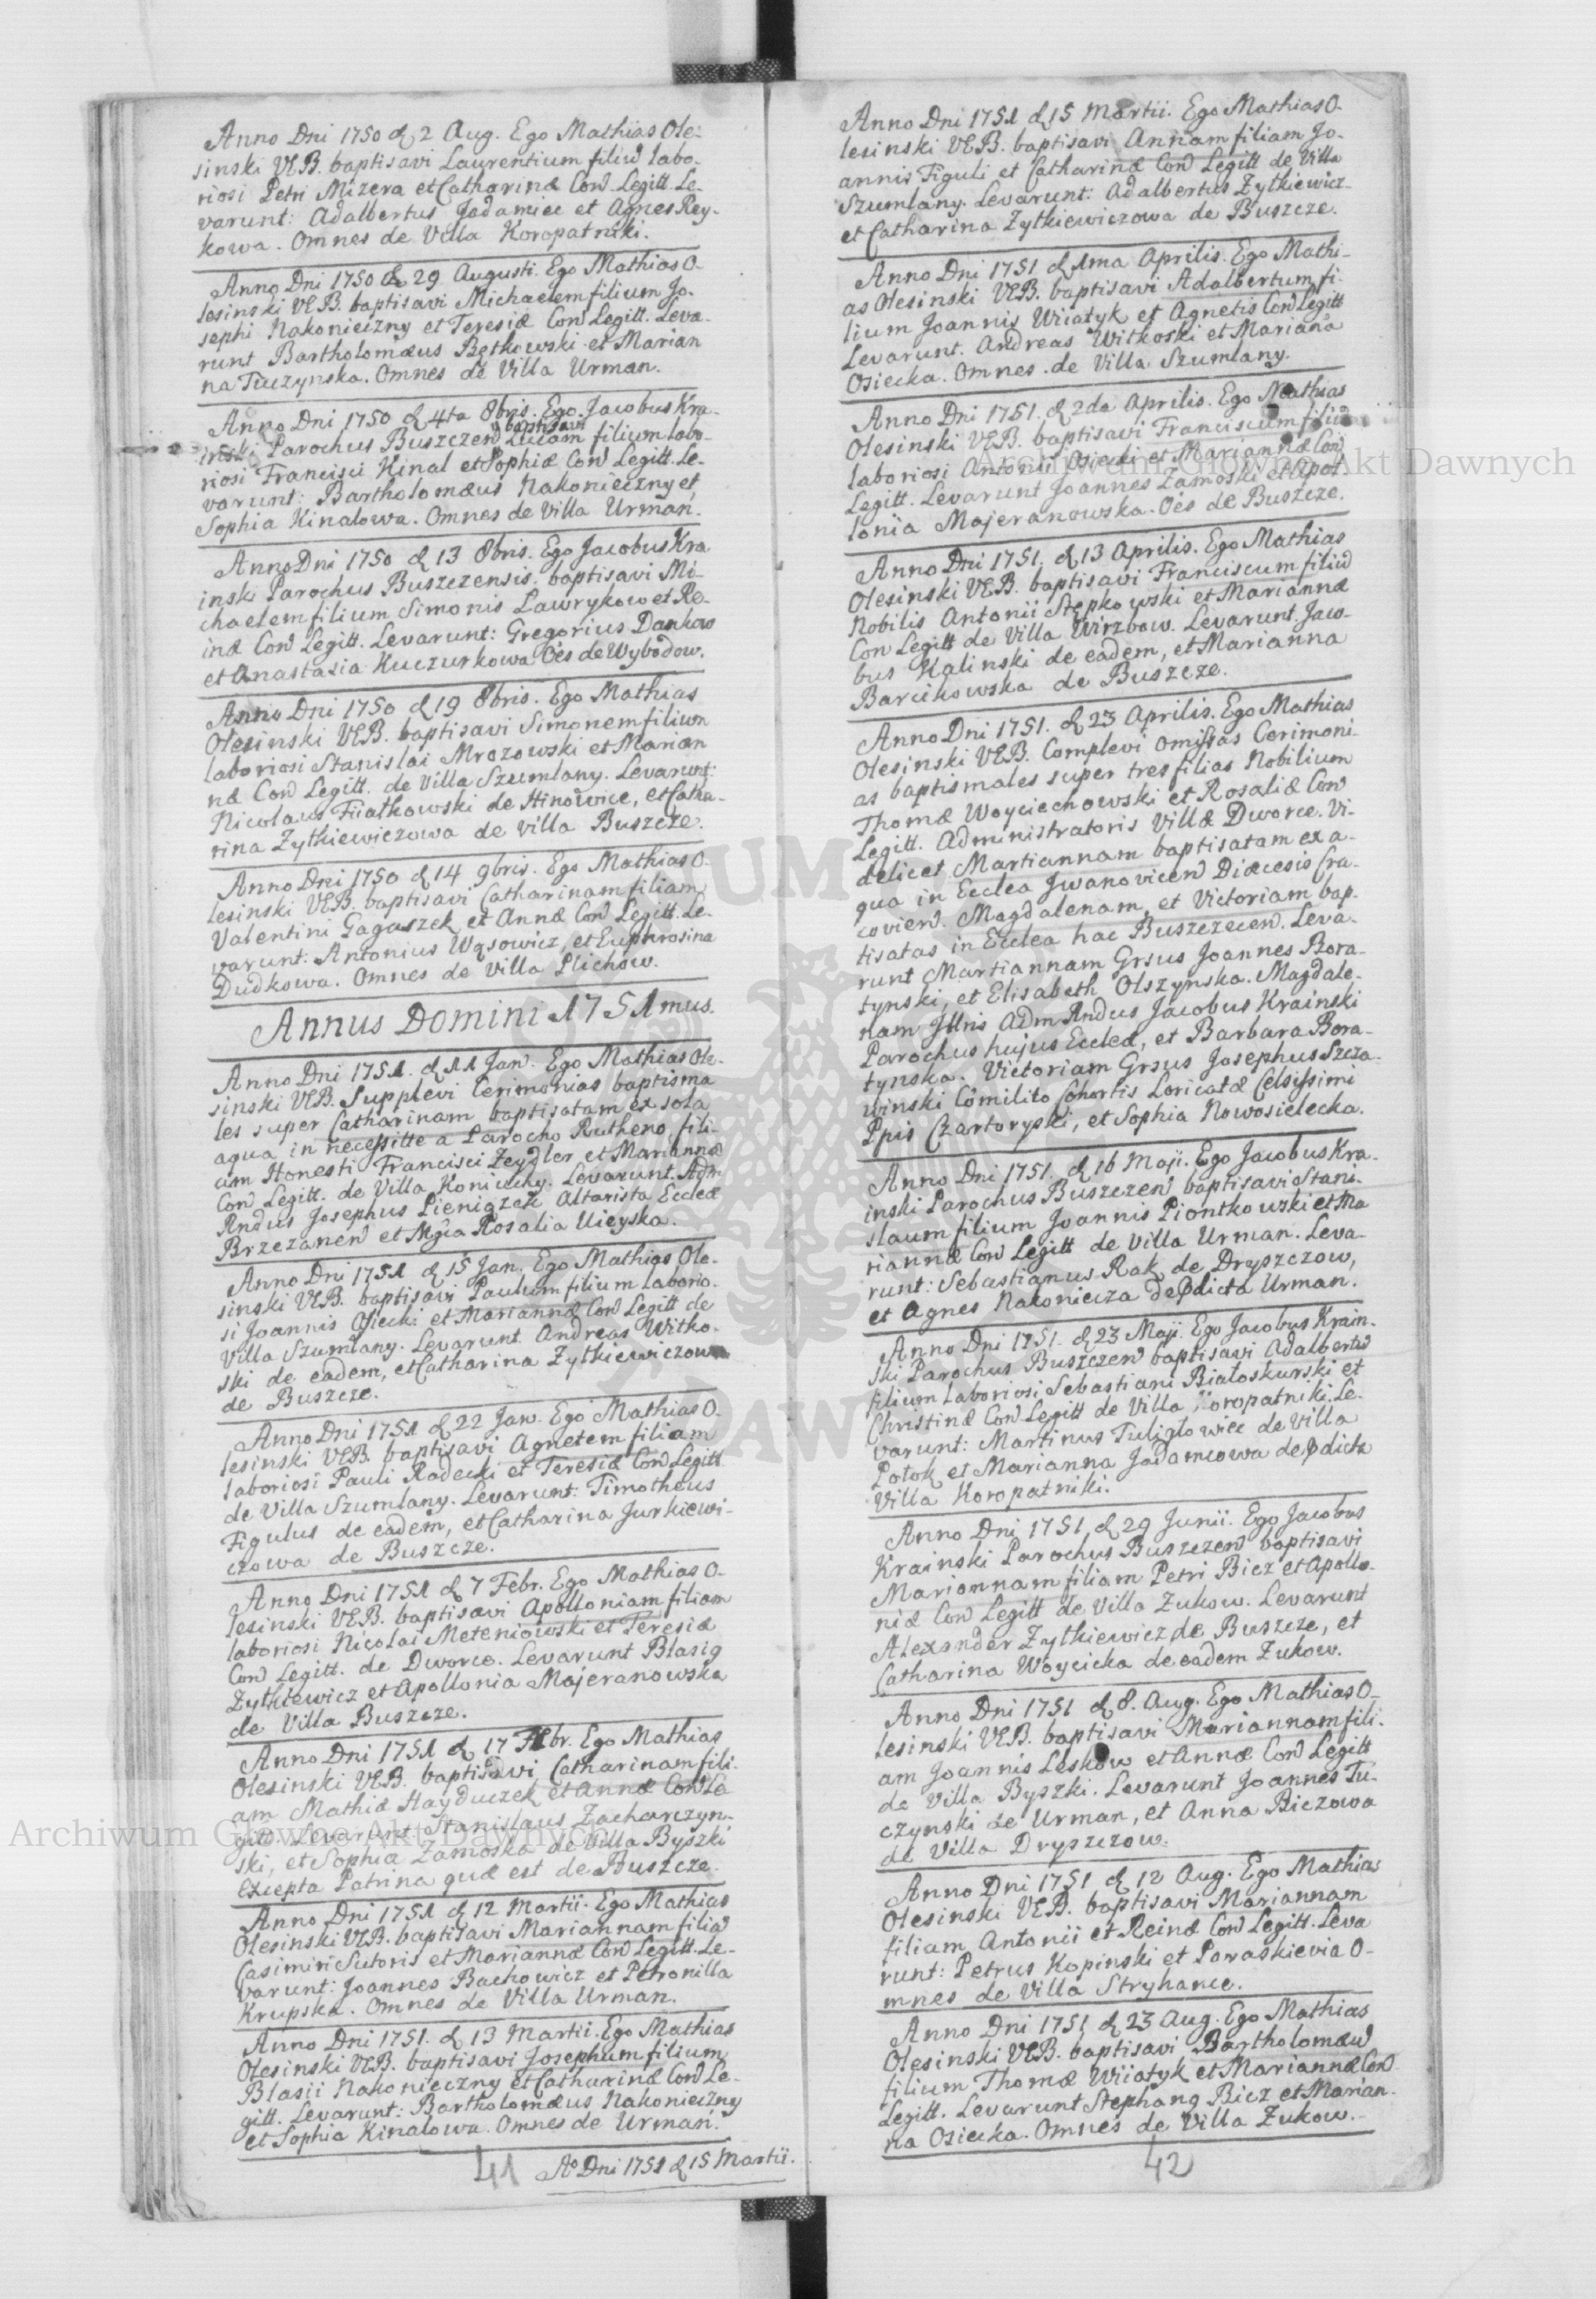 Anno Dni 1750 d 2 Aug. Ego Mathias Ole-
sinski VEB. baptisavi Laurentium filiu labo-
riosi Petri Mizera et Catharinæ Con Legitt. Le-
varunt: Adalbertus Jadamiec et Agnes Rey-
kowa. Omnes de Villa Koropatniki.
Anno Dni 1750 d 29 Augusti. Ego Mathias O-
lesinski VEB. baptisavi Michaelem filium Jo-
sephi Nakonieczny et Teresiæ Con Legitt. Leva-
runt Bartholomæus Bętkowski et Marian
na Tuczynska. Omnes de Villa Urman.
Anno Dni 1750 d 4ta 8bris. Ego Jacobus Kra-
baptisavi
inski Parochus Buszczen Lucam filium labo-
riosi Francisci Kinal et Sophiæ Con Legitt. Le-
varunt: Bartholomæus Nakonieczny et
Sophia Kinalowa. Omnes de Villa Urman.
Anno Dni 1750 d 13 8bris. Ego Jacobus Kra
inski Parochus Buszczensis. baptisavi Mi-
chaelem filium Simonis Lawrykow et Re-
inæ Con Legitt. Levarunt: Gregorius Dankow
et Anastasia Kuczurkowa Oes de Wybodow.
Anno Dni 1750 d 19 8bris. Ego Mathias
Olesinski VEB. baptisavi Simonem filium
laboriosi Stanislai Mrozowski et Marian
næ Con Legitt. de Villa Szumlany. Levarunt:
Nicolaus Fiiałkowski de Hinowice, et Catha-
rina Zytkiewiczowa de Villa Buszcze.
Anno Dni 1750 d 14 9bris. Ego Mathias O-
lesinski VEB. baptisavi Catharinam filiam
Valentini Gaguszek et Annæ Con Legitt. Le-
varunt: Antonius Wąsowicz, et Euphrosina
Dudkowa. Omnes de Villa Plichow.
Annus Domini 1751mus.
Anno Dni 1751. d 11 Jan. Ego Mathias Ole-
sinski VEB. Supplevi Cerimonias baptisma
les super Catharinam baptisatam ex sola
aqua in necessitte a Parocho Rutheno, fili-
am Honesti Francisci Zeydler et Mariannæ
Con Legitt. de Villa Koniuchy. Levarunt. Adm
Rndus Josephus Pieniązek Altarista Eccleæ
Brzezanen et Mgca Rosalia Uieyska.
Anno Dni 1751 d 15 Jan. Ego Mathias Ole-
sinski VEB. baptisavi Paulum filium laborio-
si Joannis Osiecki et Mariannæ Con Legitt de
Villa Szumlany. Levarunt Andreas Witko-
ski de eadem, et Catharina Zytkiewiczowa
de Buszcze.
Anno Dni 1751 d 22 Jan. Ego Mathias O-
lesinski VEB. baptisavi Agnetem filiam
laboriosi Pauli Radecki et Teresiæ Con Legitt
de Villa Szumlany. Levarunt: Timotheus
Figulus de eadem, et Catharina Jurkiewi-
czowa de Buszcze.
Anno Dni 1751 d 7 Febr. Ego Mathias O-
lesinski VEB. baptisavi Apolloniam filiam
laboriosi Nicolai Meteniowski et Teresiæ
Con Legitt. de Dworce. Levarunt Blasig
Zytkiewicz et Apollonia Majeranowska
de Villa Buszcze.
Anno Dni 1751 d 17 Febr. Ego Mathias
Olesinski VEB. baptisavi Catharinam fili-
am Mathiæ Hayduczek et Annæ Con Le
gitt. Levarunt Stanislaus Zacharczyn-
ski, et Sophia Zamoska de Villa Byszki
Excepta Patrina quæ est de Buszcze.
Anno Dni 1751 d 12 Martii. Ego Mathias
Olesinski VEB. baptisavi Mariannam filia
Casimiri Sutoris et Mariannæ Con Legitt. Le-
varunt: Joannes Bachowicz et Petronilla
Krupska. Omnes de Villa Urman.
Anno Dni 1751. d 13 Martii. Ego Mathias
Olesinski VEB. baptisavi Josephum filium
Blasii Nakonieczny et Catharinæ Con Le-
gitt. Levarunt: Bartholomæus Nakonieczny
et Sophia Kinalowa. Omnes de Urman.
41 Ao Dni 1751 d 15 Martii.
Anno Dni 1751 d 15 Martii. Ego Mathias O-
lesinski VEB. baptisavi Annam filiam Jo-
annis Figuli et Catharinæ Con Legitt de Villa
Szumlany. Levarunt: Adalbertus Zytkiewicz
et Catharina Zytkiewiczowa de Buszcze.
Anno Dni 1751 d 1ma Aprilis. Ego Mathi-
as Olesinski VEB. baptisavi Adalbertum fi-
lium Joannis Wiiatyk et Agnetis Con Legitt
Levarunt. Andreas Witkoski et Marianna
Osiecka. Omnes de Villa Szumlany.
Anno Dni 1751. d 2da Aprilis. Ego Mathias
Olesinski VEB. baptisavi Franciscum filiu
laboriosi Antonii Osiecki et Mariannæ Con
Legitt. Levarunt Joannes Zamoski et Apol-
lonia Majeranowska. Oes de Buszcze.
Anno Dni 1751. d 13 Aprilis. Ego Mathias
Olesinski VEB. baptisavi Franciscum filiu
Nobilis Antonii Stępkowski et Mariannæ
Con Legitt de Villa Wirzbow. Levarunt Jaco-
bus Kalinski de eadem, et Marianna
Barcikowska de Buszcze.
Anno Dni 1751. d 23 Aprilis. Ego Mathias
Olesinski VEB. Complevi omissas Cerimoni-
as baptismales super tres filias Nobilium
Thomæ Woyciechowski et Rosaliæ Con
Legitt. Administratoris Villæ Dworce. Vi-
delicet Martiannam baptisatam ex a-
qua in Ecclea Jwanovicen Diæcesis Cra-
covien. Magdalenam, et Victoriam bap-
tisatas in Ecclea hac Buszczecen. Leva-
runt Martiannam Grsus Joannes Bora-
tynski, et Elisabeth Olszynska. Magdale-
nam Jllris Adm Rndus Jacobus Krainski
Parochus hujus Eccleæ, et Barbara Bora-
tynska. Victoriam Grsus Josephus Szcza-
winski Comilito Cohortis Loricatæ Celsissimi
Ppis Czartoryski, et Sophia Nowosielecka.
Anno Dni 1751. d 16 Maji. Ego Jacobus Kra-
inski Parochus Buszczen baptisavi Stani-
slaum filium Joannis Piontkowski et Ma
riannæ Con Legitt de Villa Urman. Leva-
runt: Sebastianus Rak de Dryszczow,
et Agnes Nakoniecza de pdicta Urman.
Anno Dni 1751. d 23 Maji. Ego Jacobus Krain-
ski Parochus Buszczen baptisavi Adalbertu
filium laboriosi Sebastiani Białoskurski et
Christinæ Con Legitt de Villa Koropatniki. Le-
varunt: Martinus Tuligłowice de Villa
Potok et Marianna Jadamcowa de pdicta
Villa Koropatniki.
Anno Dni 1751 d 29 Junii. Ego Jacobus
Krainski Parochus Buszczen baptisavi
Mariannam filiam Petri Bicz et Apollo-
niæ Con Legitt de Villa Zukow. Levarunt
Alexander Zytkiewicz de Buszcze, et
Catharina Woycicka de eadem Zukow.
Anno Dni 1751 d 8. Aug. Ego Mathias O-
lesinski VEB. baptisavi Mariannam fili-
am Joannis Leskow et Annæ Con Legitt
de Villa Byszki. Levarunt Joannes Tu-
czynski de Urman, et Anna Biczowa
de Villa Dryszczow.
Anno Dni 1751 d 12 Aug. Ego Mathias
Olesinski VEB. baptisavi Mariannam
filiam Antonii et Reinæ Con Legitt. Leva
runt: Petrus Kopinski et Paraskievia O-
mnes de Villa Stryhance.
Anno Dni 1751 d 23 Aug. Ego Mathias
Olesinski VEB. baptisavi Bartholomæu
filium Thomæ Wiiatyk et Mariannæ Con
Legitt. Levarunt Stephang Bicz et Marian-
na Osiecka. Omnes de Villa Zukow.
42
Archiwum Główne Akt Dawnych
Archiwum Główne Akt Dawnych